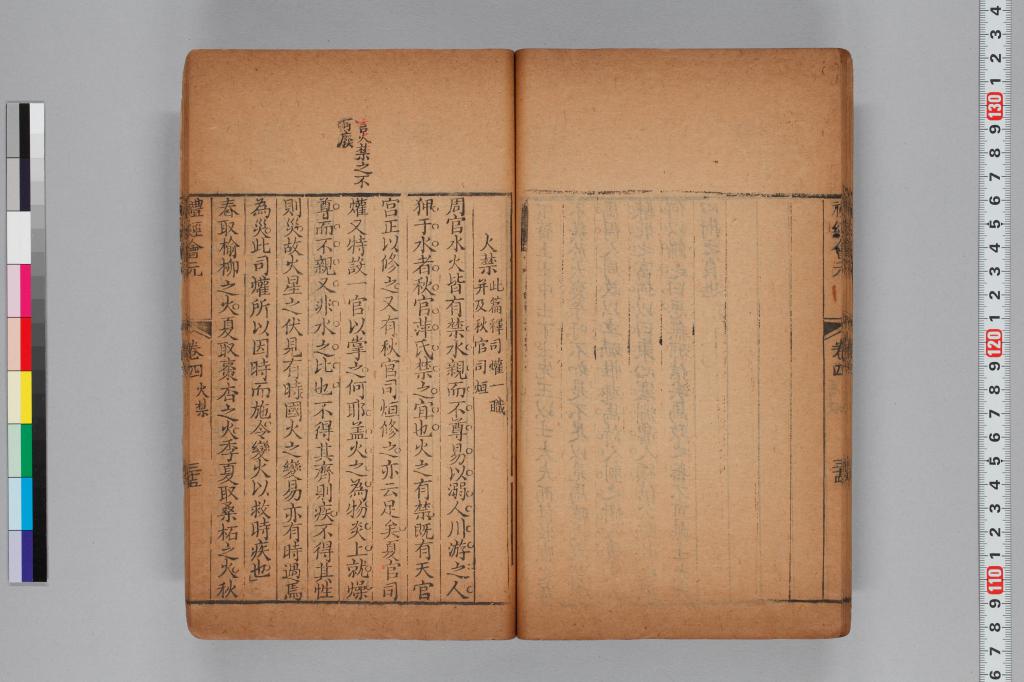 禮經會元
卷四
火禁 此篇釋司爟一職
并及秋官司烜
周官水火皆有禁水親而不尊易以溺人川游之人
狎于水者秋官萍氏禁之宜也火之有禁既有天官
宮正以修之又有秋官司烜修之亦云足矣夏官司
爟又特設一官以掌之何耶盖火之為物炎上就燥
尊而不親又非水之比也不得其齊則疾不得其性
則災故火星之伏見有時國火之變易亦有時遇焉
為災此司爟所以因時而施令變火以救時疾也
春取榆柳之火夏取棗杏之火季夏取桑柘之火秋
言火禁之不
可廢
禮經會元
卷四 火禁